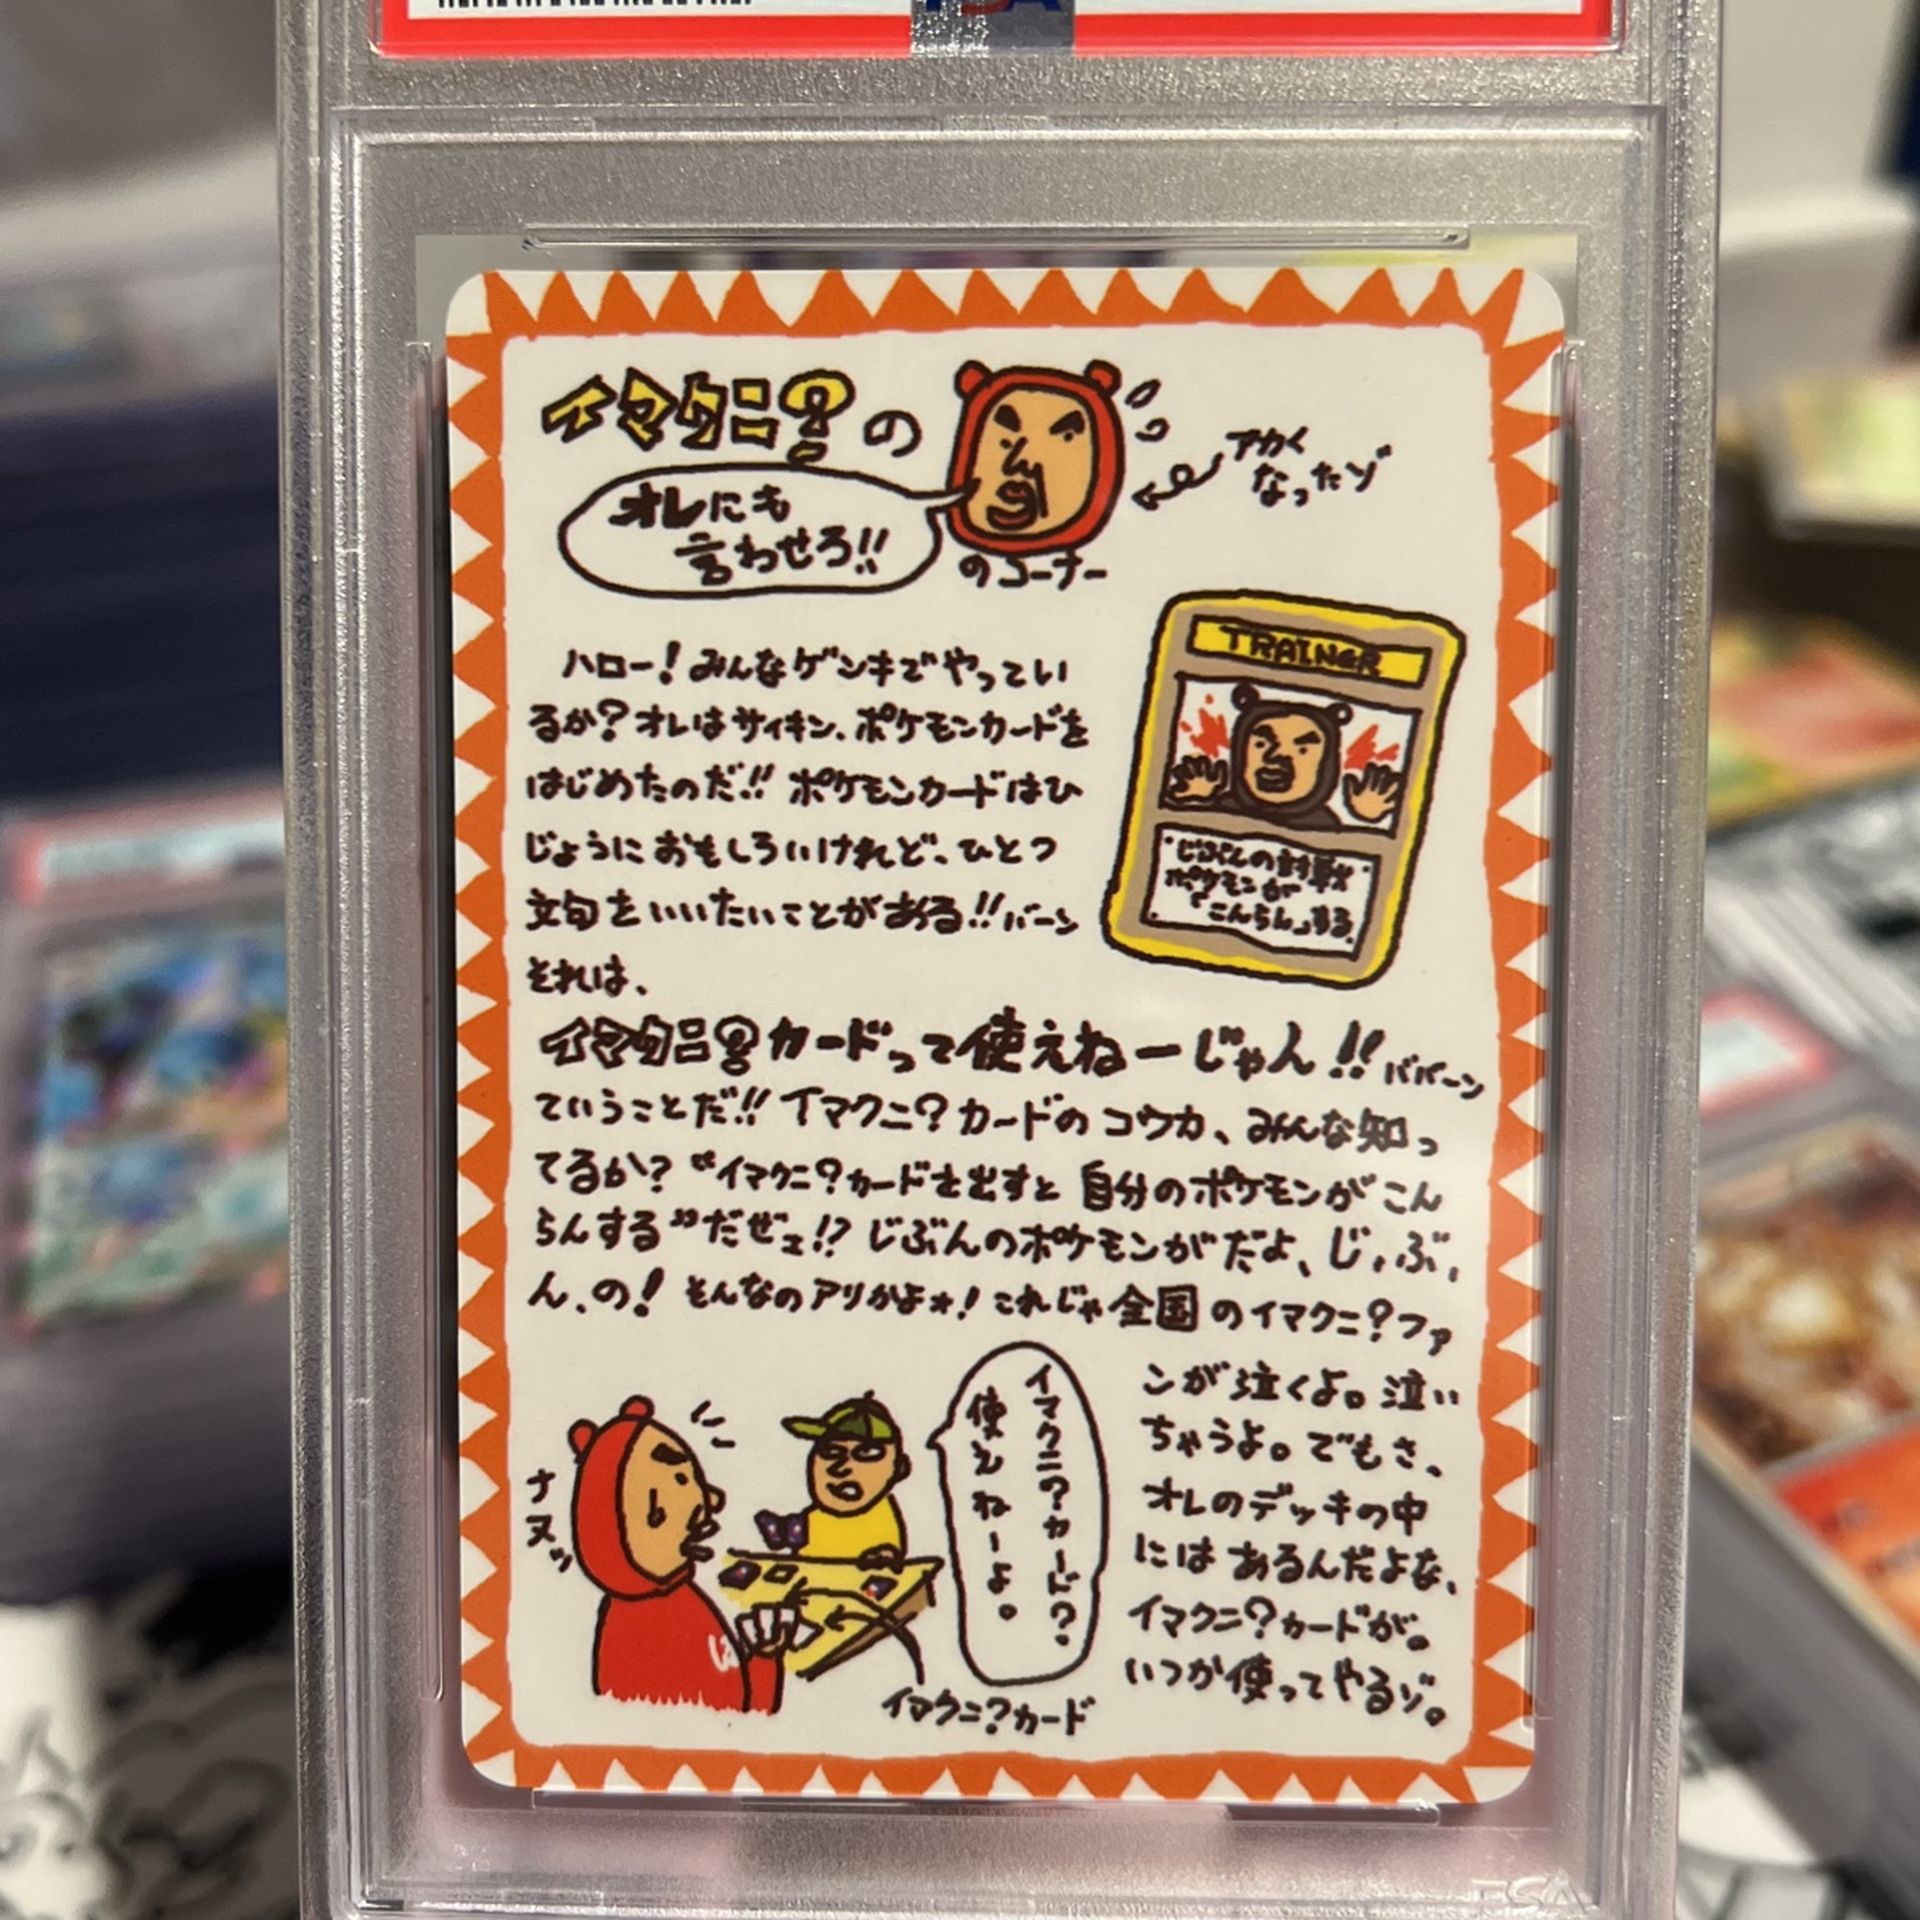 PSA
イマクニ？の
オレにも
言わせろ!!
のコーナー
アカく
なったゾ
ハロー！みんなゲンキでやってい
るか？オレはサイキン、ポケモンカードを
はじめたのだ!!ポケモンカードはひ
じょうにおもしろいけれど、ひとつ
文句をいいたいことがある!!バーン
それは、
TRAINER
・じぶんの対戦
ポケモンが
「こんらん」する。
イマクニ？カードって使えねーじゃん!!ババーン
ていうことだ!!イマクニ？カードのコウカ、みんな知っ
てるか？“イマクニ？カードを出すと自分のポケモンがこん
らんする”だぜェ!?じぶんのポケモンがだよ、じ、ぶ、
ん、の！そんなのアリかよォ！これじゃ全国のイマクニ？ファ
ンが泣くよ。泣い
ちゃうよ。でもさ、
オレのデッキの中
にはあるんだよな、
イマクニ？カードが。
いつか使ってやるゾ。
ナヌッ
イマクニ？カード？
使えねーよ。
イマクニ？カード
PSA